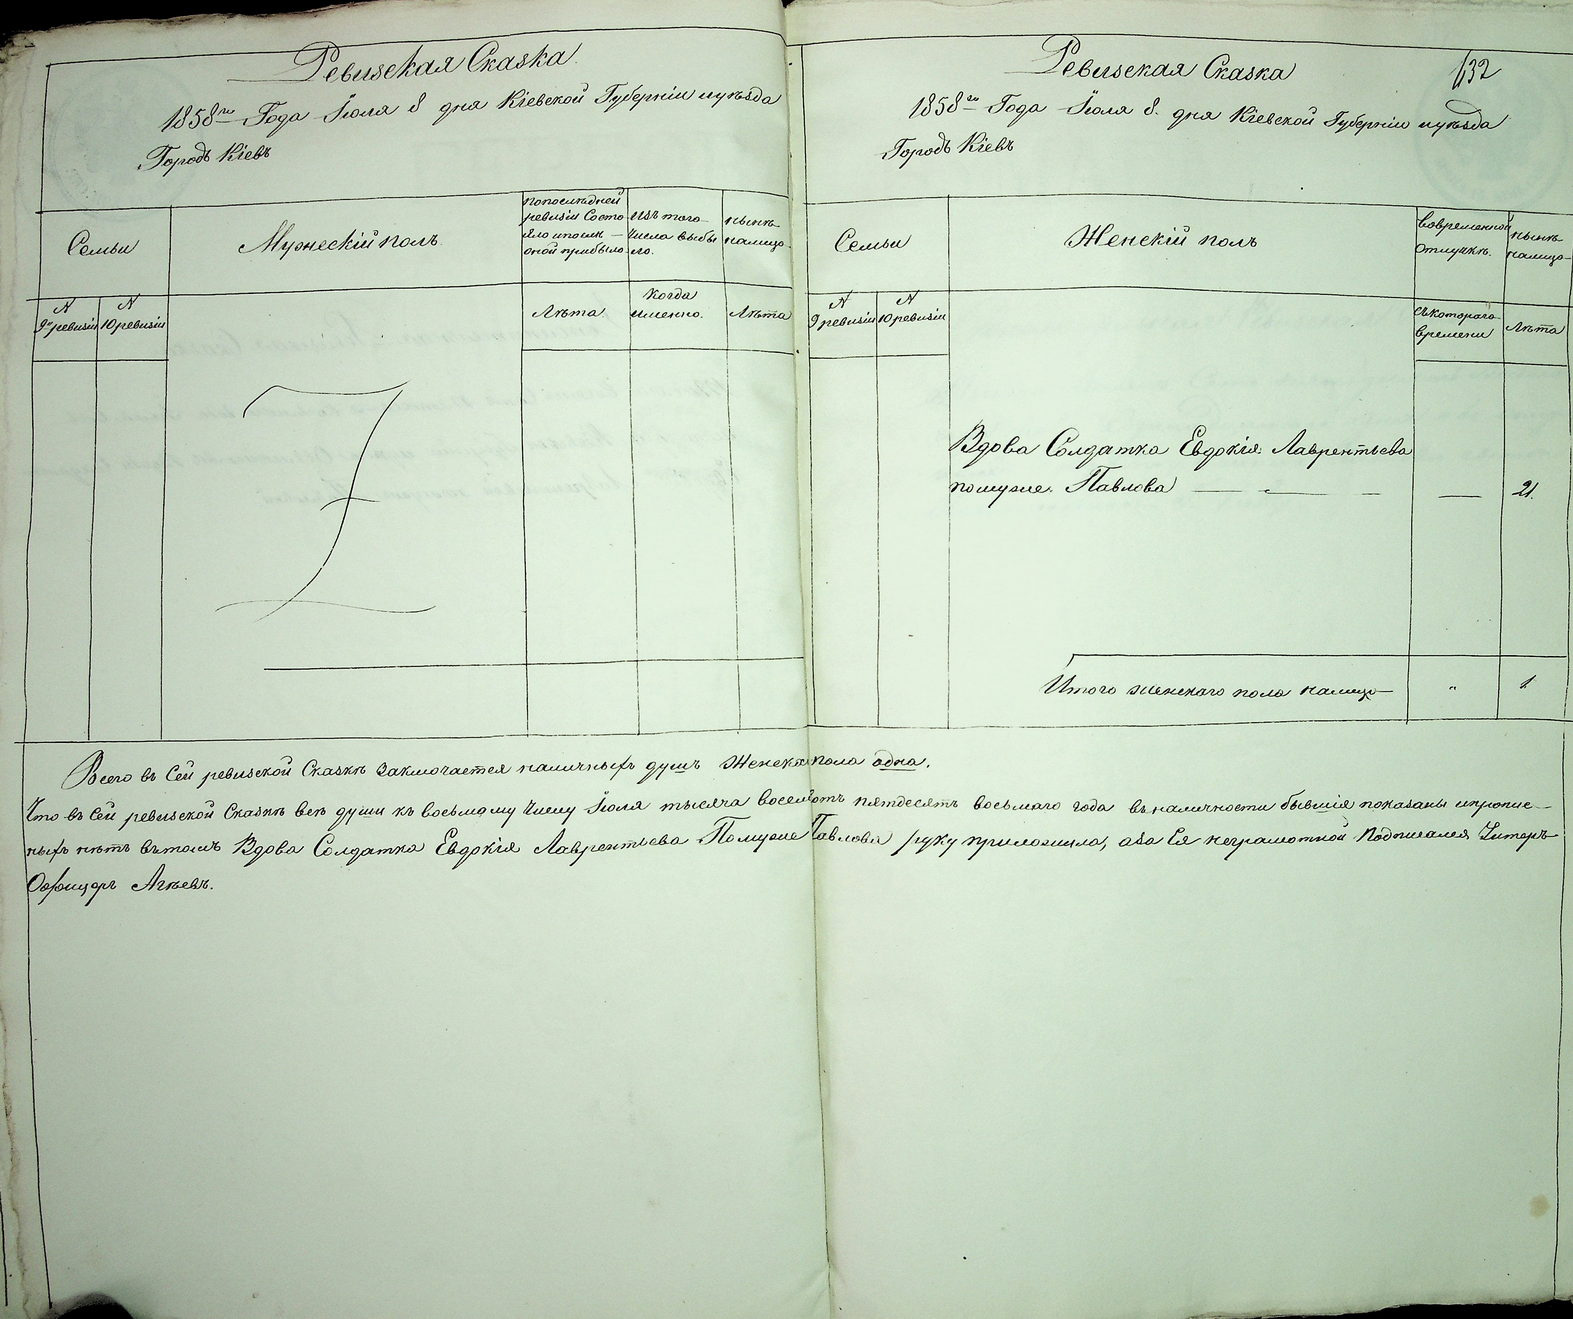 Ревизская Сказка
1858го Года Іюля 8 дня Кіевской Губерніи и уѣзда
Городъ Кіевъ
Семьи
Мужескій полъ
по послѣдней
ревизіи Состо
яло и послѣ —
оной прибыло
изъ того
числа выбы
ло.
нынѣ
налицо
N
9й ревизіи
N
10 ревизіи
Лѣта
Когда
именно.
Лѣта
Ревизская Сказка
632
1858го Года Іюля 8. дня Кіевской Губерніи и уѣзда
Городъ Кіевъ
Семьи
Женскій полъ
во временной
отлучкѣ.
нынѣ
налицо
N
9 ревизіи
N
10 ревизіи
съ котораго
времени
лѣта
Вдова Солдатка Евдокія Лаврентьева
по мужѣ Павлова — — — — 21.
Итого женскаго пола налицо — „ 1.
Всего въ Сей ревизской Сказкѣ заключается наличныхъ душъ Женска пола одна.
Что въ Сей ревизской Сказкѣ всѣ души къ восьмому числу Іюля тысяча восемьсотъ пятдесятъ восьмаго года въ наличности бывшія показаны и пропис—
ныхъ нѣтъ въ томъ Вдова Солдатка Евдокія Лаврентьева По мужѣ Павлова руку приложила, а за Ея неграмотной Подписался Унтеръ—
Офицеръ Агѣевъ.